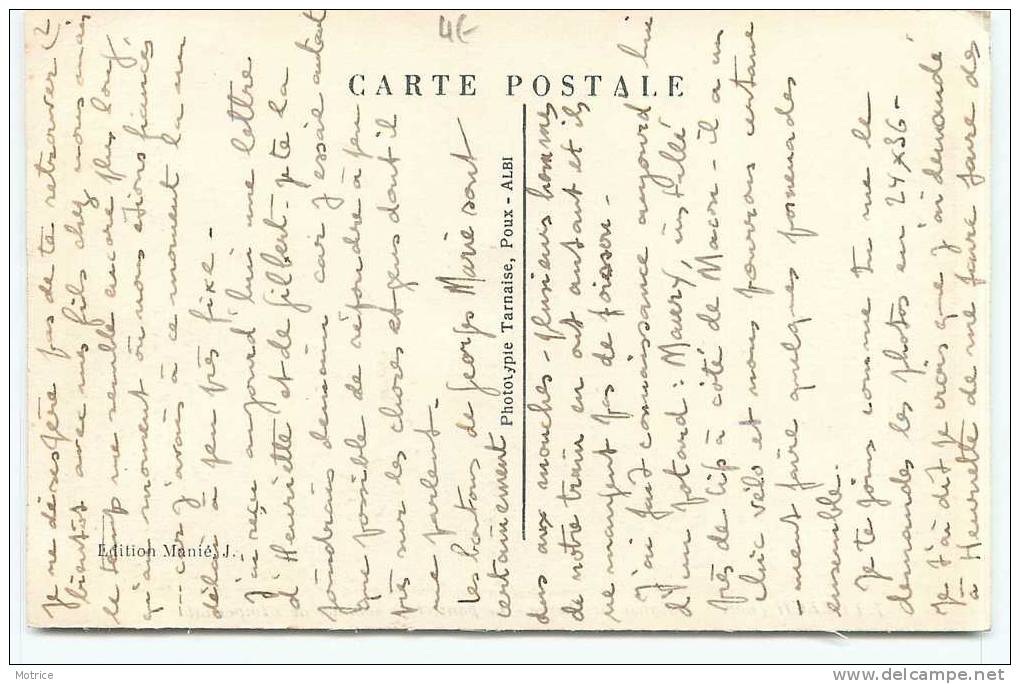 4€
CARTE POSTALE
Phototypie Tarnaise, Poux - ALBI
Edition Manié, J.
je ne désespère pas de te retrouver
bientôt avec mes fils chez nous mais
le temps me semble encore plus long,
qu'au moment où nous étions fiancés
- car j'avais à ce moment là un
délai à peu près fixe -
J'ai reçu aujourd'hui une lettre
d'Henriette et de Gilbert - je te la
joindrais demain car j'essaie autant
que possible de répondre à peu
près sur les choses et gens dont il
me parlent -
Les boutons de Georges Marie sont
certainement
dus aux mouches - plusieurs hommes
de notre train en ont autant et ils
ne mangent pas de poisson -
J'ai fait connaissance aujourd'hui
d'un potard : Maury, installé
près de à côté de Macon - il a un
vélo et nous pourrons certaine
-ment faire quelques promenades
ensemble.
Je te joins comme tu me le
demandes les photos en 24 x 36 -
Je t'ai dit je crois que j'ai demandé
à Henriette de me faire faire des
2
Motrice
delcampe.net